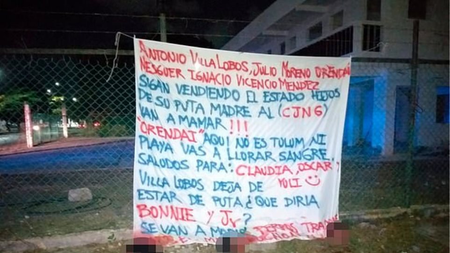 ANTONIO VILLA LOBOS, JULIO MORENO ORENDAI
NESGUER IGNACIO VICENCIO MENDEZ
SIGAN VENDIENDO EL ESTADO HIJOS
DE SU PUTA MADRE AL (CJNG)
VAN A MAMAR!!!
"ORENDAI" AQUI NO ES TULUM NI
PLAYA VAS A LLORAR SANGRE
SALUDOS PARA: CLAUDIA, OSCAR,
VILLA LOBOS DEJA DE YULI
ESTAR DE PUTA ¿QUE DIRIA
BONNIE Y Jr?
SE VAN A